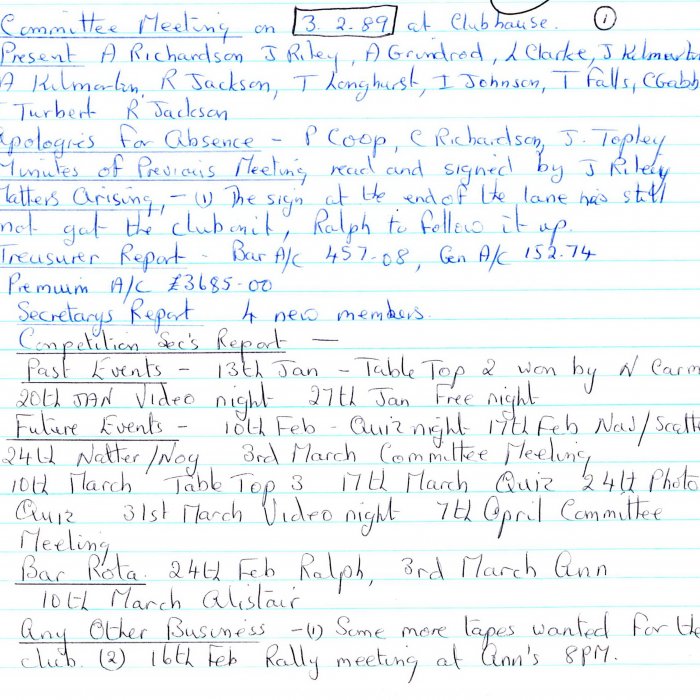 Committee Meeting on 3.2.89 at Clubhouse. (1)
Present A Richardson J Riley, A Grindrod, L Clarke, J Kilmartin
A Kilmartin, R Jackson, T Longhurst, I Johnson, T Falls, C Gabb
Turbert R Jackson
Apologies for Absence - P Coop, C Richardson, J. Topley
Minutes of Previous Meeting read and signed by J Riley
Matters Arising, - (1) The sign at the end of the lane has still
not got the club on it, Ralph to follow it up.
Treasurer Report - Bar A/c 457-08, Gen A/c 152.74
Premium A/c £3685-00
Secretarys Report 4 new members.
Competition Sec's Report -
Past Events - 13th Jan - Table Top 2 won by N Carm
20th JAN Video night 27th Jan Free night
Future Events - 10th Feb - Quiz night 17th Feb Nav/Scatt
24th Natter/Nog 3rd March Committee Meeting
10th March Table Top 3 17th March Quiz 24th Photo
Quiz 31st March Video night 7th April Committee
Meeting
Bar Rota. 24th Feb Ralph, 3rd March Ann
10th March Alistair
Any Other Business - (1) Some more tapes wanted for the
club. (2) 16th Feb Rally meeting at Ann's 8PM.